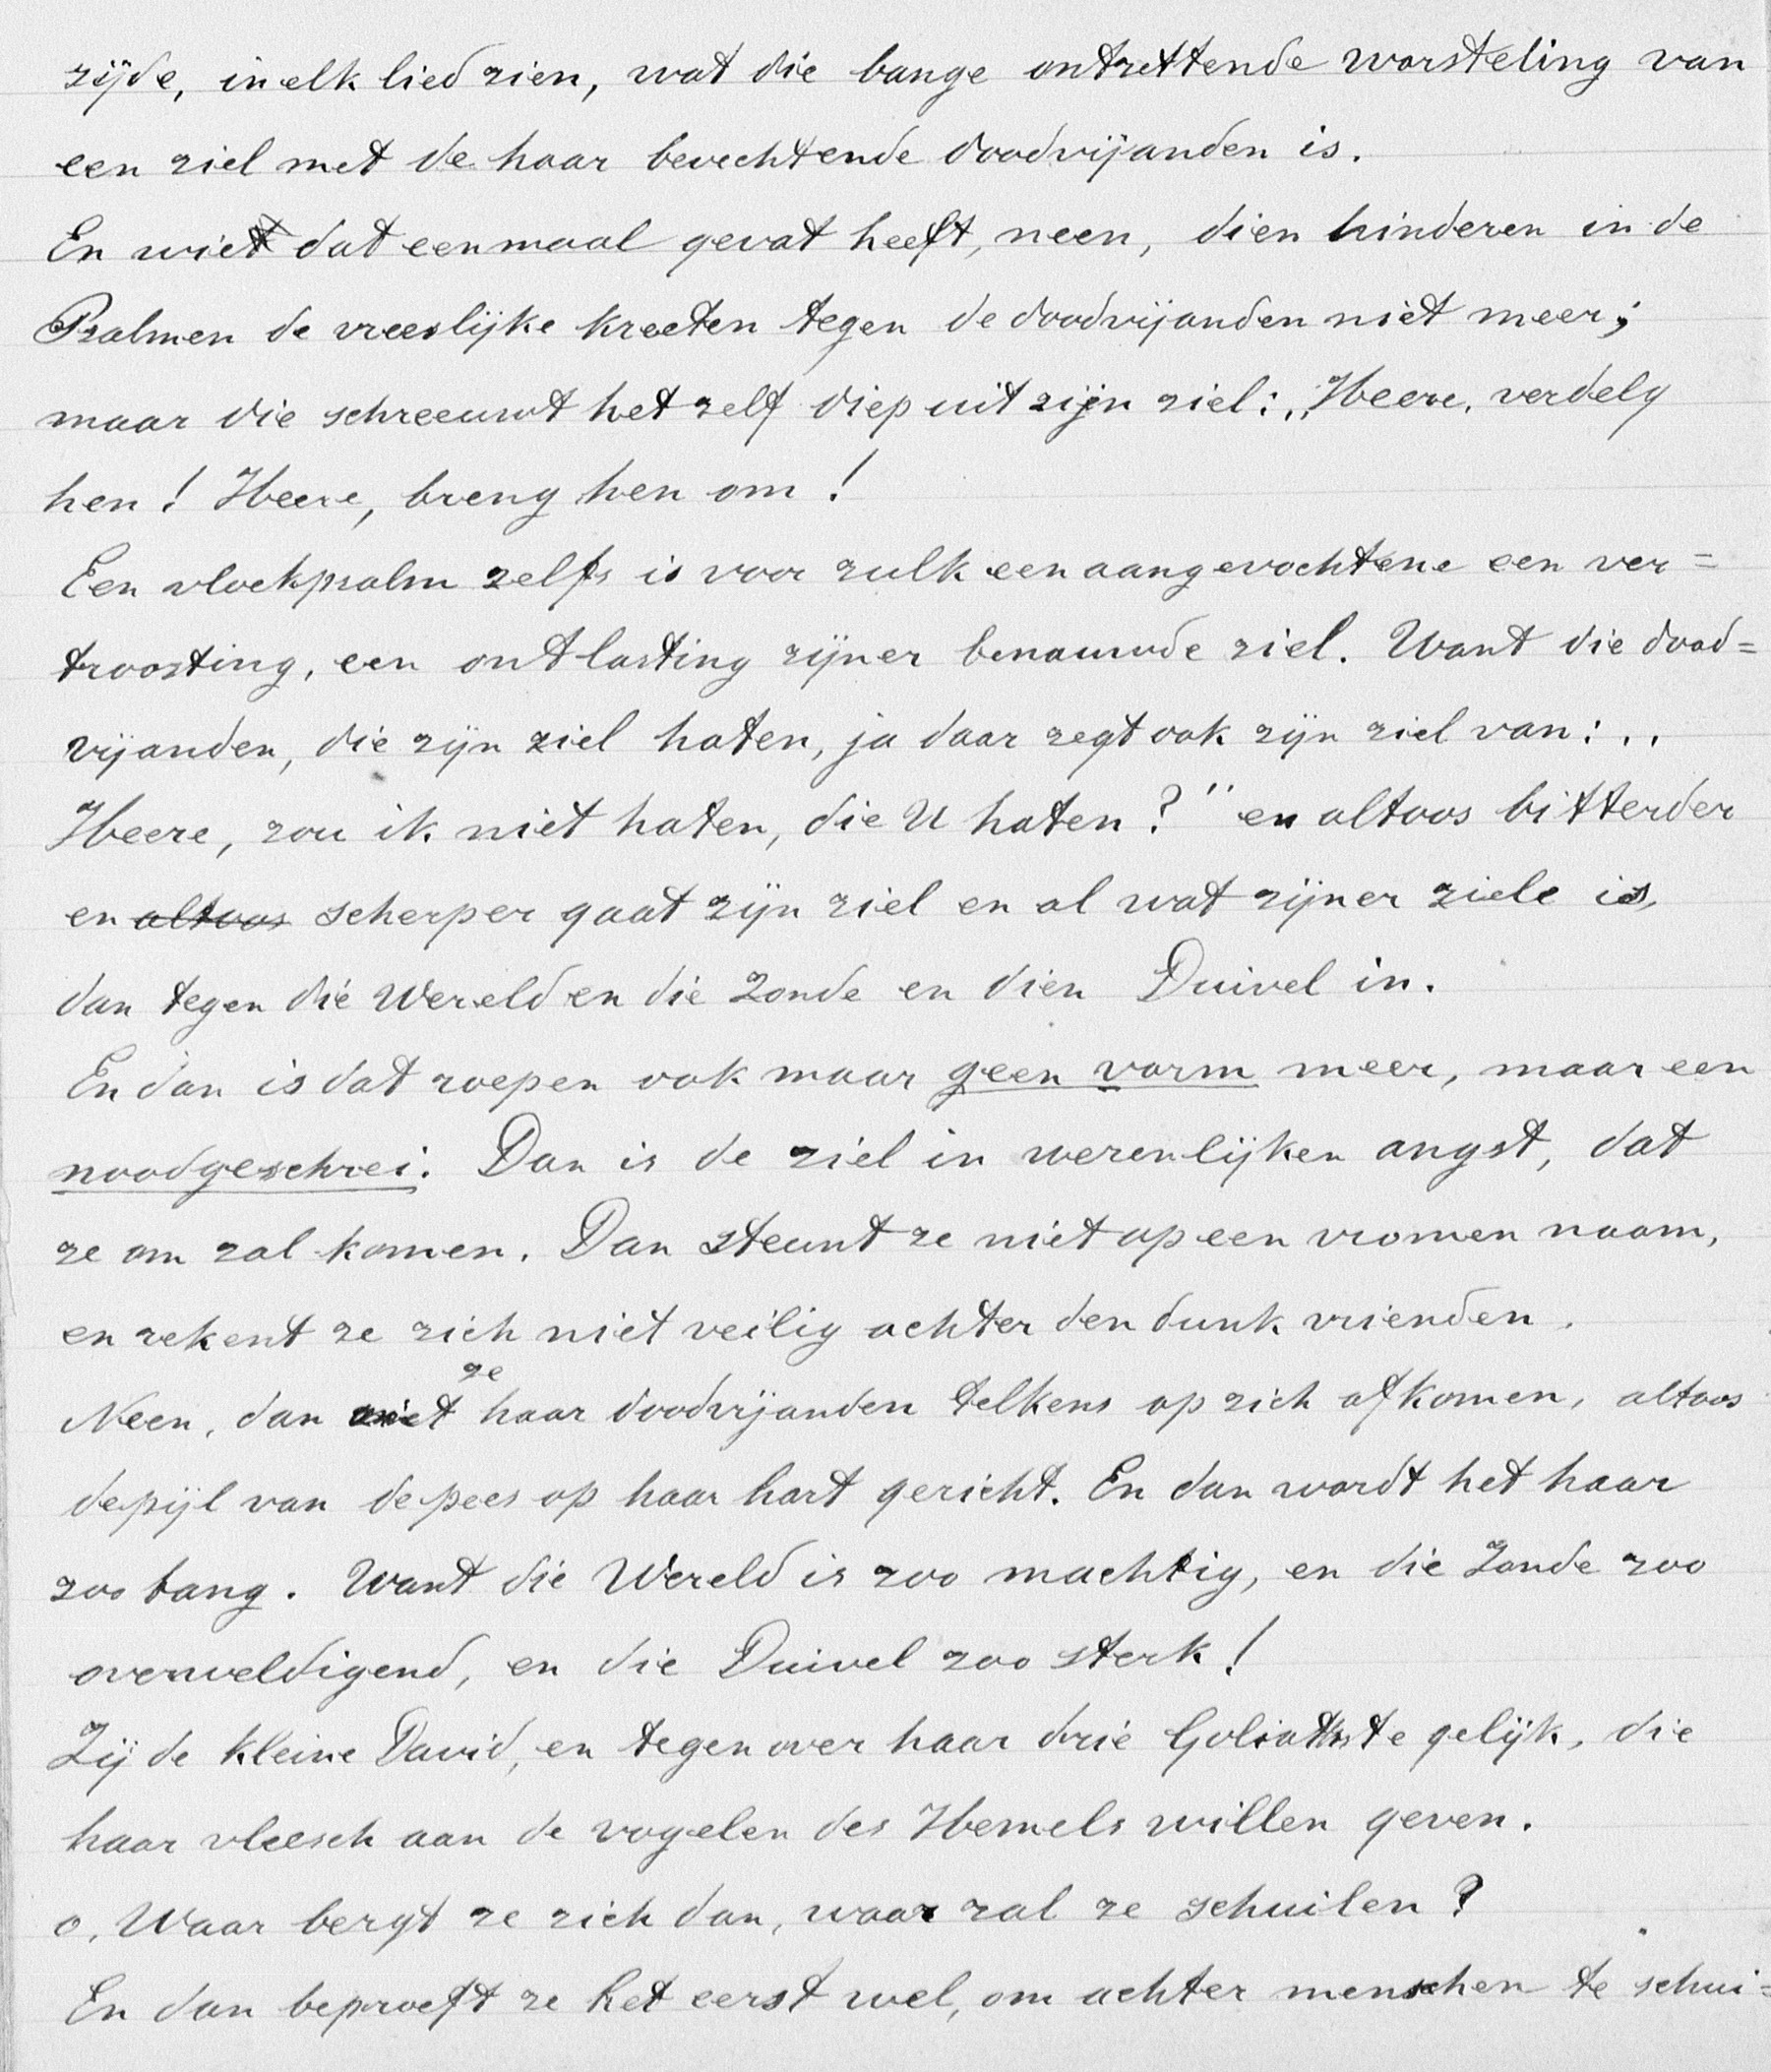 zijde, in elk lied zien, wat die bange ontzettende worsteling van
een ziel met de haar bevechtende doodvijanden is.
En wie dat eenmaal gevat heeft, neen, dien hinderen in de
Psalmen de vreeslijke kreeten tegen de doodvijanden niet meer;
maar die schreeuwt het zelf diep uit zijn ziel: „Heere, verdelg
hen! Heere, breng hen om!
Een vloekpsalm zelfs is voor zulk een aangevochtene een ver=
troosting, een ontlasting zijner benauwde ziel. Want die dood=
vijanden, die zijn ziel haten, ja daar zegt ook zijn ziel van: „
Heere, zou ik niet haten, die U haten?" en altoos bitterder
en altoos scherper gaat zijn ziel en al wat zijner ziele is,
dan tegen die Wereld en die Zonde en dien Duivel in.
En dan is dat roepen ook maar geen vorm meer, maar een
noodgeschrei. Dan is de ziel in wezenlijken angst, dat
ze om zal komen. Dan steunt ze niet op een vromen naam,
en rekent ze zich niet veilig achter den dunk vrienden.
Neen, dan ziet ze haar doodvijanden telkens op zich afkomen, altoos
de pijl van de pees op haar hart gericht. En dan wordt het haar
zoo bang. Want die Wereld is zoo machtig, en die Zonde zoo
overweldigend, en die Duivel zoo sterk!
Zij de kleine David, en tegenover haar drie Goliaths te gelijk, die
haar vleesch aan de vogelen des Hemels willen geven.
o, Waar bergt ze zich dan, waar zal ze schuilen?
En dan beproeft ze het eerst wel, om achter menschen te schui=